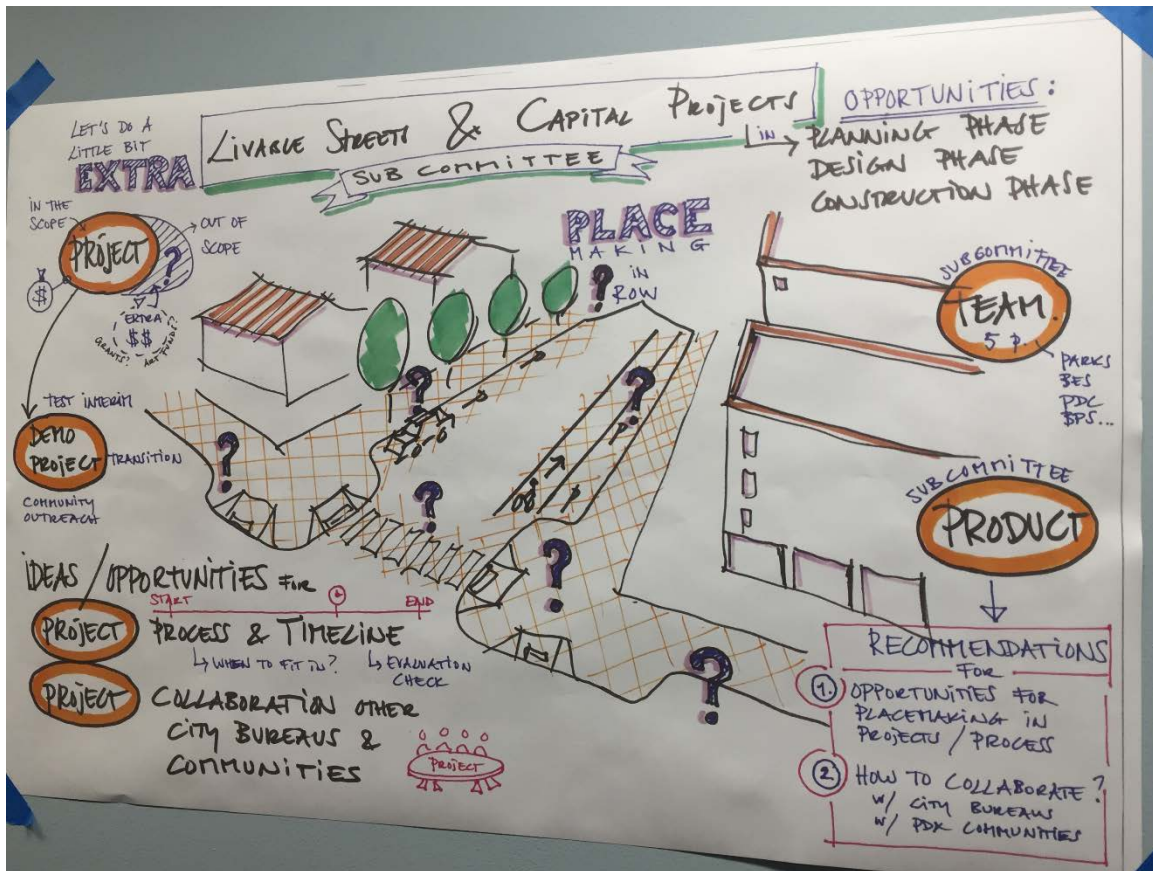 LET'S DO A
LITTLE BIT
EXTRA
LIVABLE STREETS & CAPITAL PROJECTS
SUB COMMITTEE
OPPORTUNITIES:
IN → PLANNING PHASE
DESIGN PHASE
CONSTRUCTION PHASE
IN THE
SCOPE
PROJECT
?
OUT OF
SCOPE
$
EXTRA
$$
GRANTS?
ART FUNDS?
TEST INTERIM
DEMO
PROJECT
TRANSITION
COMMUNITY
OUTREACH
PLACE
MAKING
? IN
ROW
?
?
?
?
?
?
SUBCOMMITTEE
TEAM.
5 P.
PARKS
BES
PDC
BPS...
SUBCOMMITTEE
PRODUCT
IDEAS / OPPORTUNITIES FOR
START
END
PROJECT
PROCESS & TIMELINE
↳ WHEN TO FIT IN?
↳ EVALUATION
CHECK
PROJECT
COLLABORATION OTHER
CITY BUREAUS &
COMMUNITIES
PROJECT
RECOMMENDATIONS
FOR
1. OPPORTUNITIES FOR
PLACEMAKING IN
PROJECTS / PROCESS
2 HOW TO COLLABORATE?
W/ CITY BUREAUS
W/ PDX COMMUNITIES